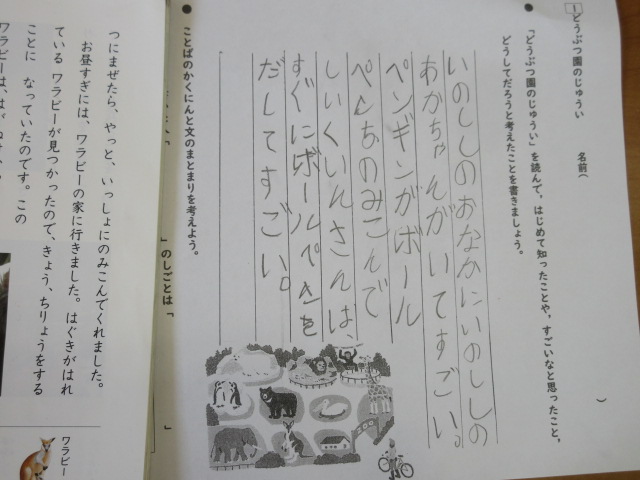 1
どうぶつ園のじゅうい　名前（　）
●「どうぶつ園のじゅうい」を読んで、はじめて知ったことや、すごいなと思ったこと、
どうしてだろうと考えたことを書きましょう。
いのししのおなかにいのししの
あかちゃんがいてすごい。
ペンギンがボール
ペンおのみこんで
しいくいんさんは、
すぐにボールペンを
だしてすごい。
●ことばのかくにんと文のまとまりを考えよう。
」のしごとは「　」
つにまぜたら、やっと、いっしょにのみこんでくれました。
お昼すぎには、ワラビーの家に行きました。はぐきがはれ
ている ワラビーが見つかったので、きょう、ちりょうをする
ことに なっていたのです。この
ワラビー
ZOO